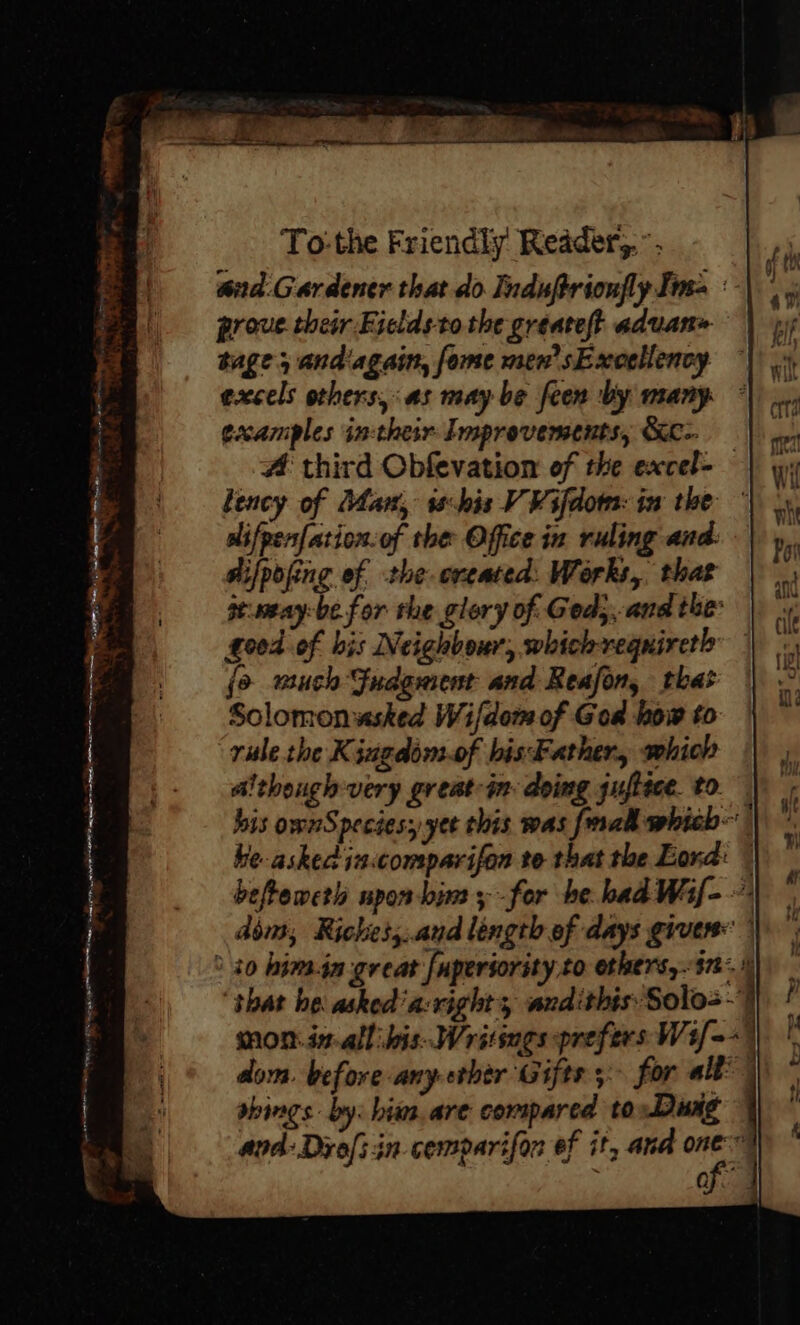 To the Friendly Reader,
and Gardener that do Induſtriouſly Im-
prove their Fields to the greateſt advan-
tage; and again, ſome men's Excellency
excels others, as may be ſeen by many
examples in their Improvements, &c.
A third Obſevation of the excel-
lency of Man, is his VViſdom in the
diſpenſation of the Office in ruling and
diſpoſing of the created Works, that
it may be for the glory of God, and the
good of his Neighbour, which requireth
ſo much Judgment and Reaſon, that
Solomon asked Wiſdom of God how to
rule the Kingdom of his Father, which
although very great in doing juſtice to
his own Species, yet this was ſmall which
he asked in compariſon to that the Lord
beſtoweth upon him; for he had Wiſ-
dom, Riches, and length of days given
to him in great ſuperiority to others, in
that he asked aright; and this Solo-
mon in all his Writings prefers Wiſ-
dom before any other Gifts; for all
things by him are compared to Dung
and Droſs in compariſon of it, and one
of